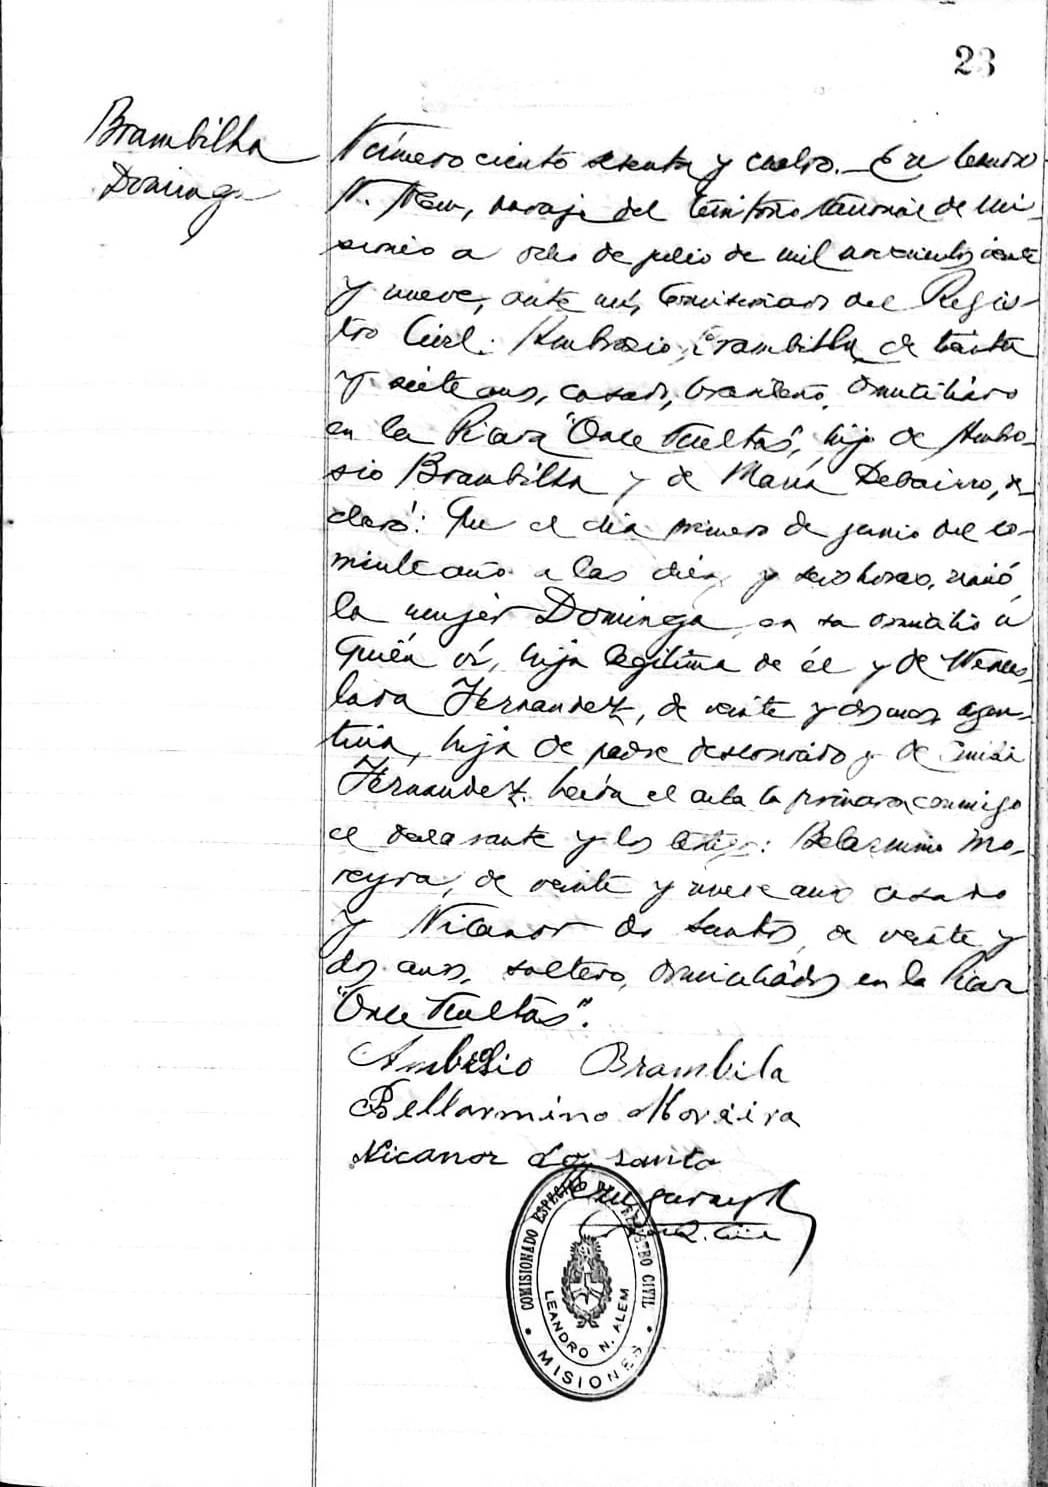 23
Brambilha
Dominga
Número ciento sesenta y cuatro. En Leandro
N. Alem, paraje del Territorio Nacional de Mi-
siones a ocho de julio de mil novecientos veinte
y nueve, ante mí, Comisionado del Regis-
tro Civil. Ambrosio Brambilha, de treinta
y siete años, casado, brasileño, domiciliado
en la Picada "Once Vueltas", hijo de Ambro-
sio Brambilha y de María Debairro, de-
claró: Que el dia primero de junio del co-
rriente año a las diez y seis horas, nació
la mujer Dominga, en su domicilio á
quién ví, hija legítima de él y de Wences-
lada Hernandez, de veinte y dos años, argen-
tina, hija de padre desconocido y de
Hernandez. Leída el acta la firmaron conmigo
el declarante y los testigos: Belarmino Mo-
reyra, de veinte y nueve años casado
y Nicanor do Santos, de veinte y
dos años, soltero, domiciliados en la Picada
"Once Vueltas".
Ambrosio Brambila
Bellarmino Moreira
Nicanor do santo
COMISIONADO ESPECIAL DEL REGISTRO CIVIL
LEANDRO N. ALEM
MISIONES